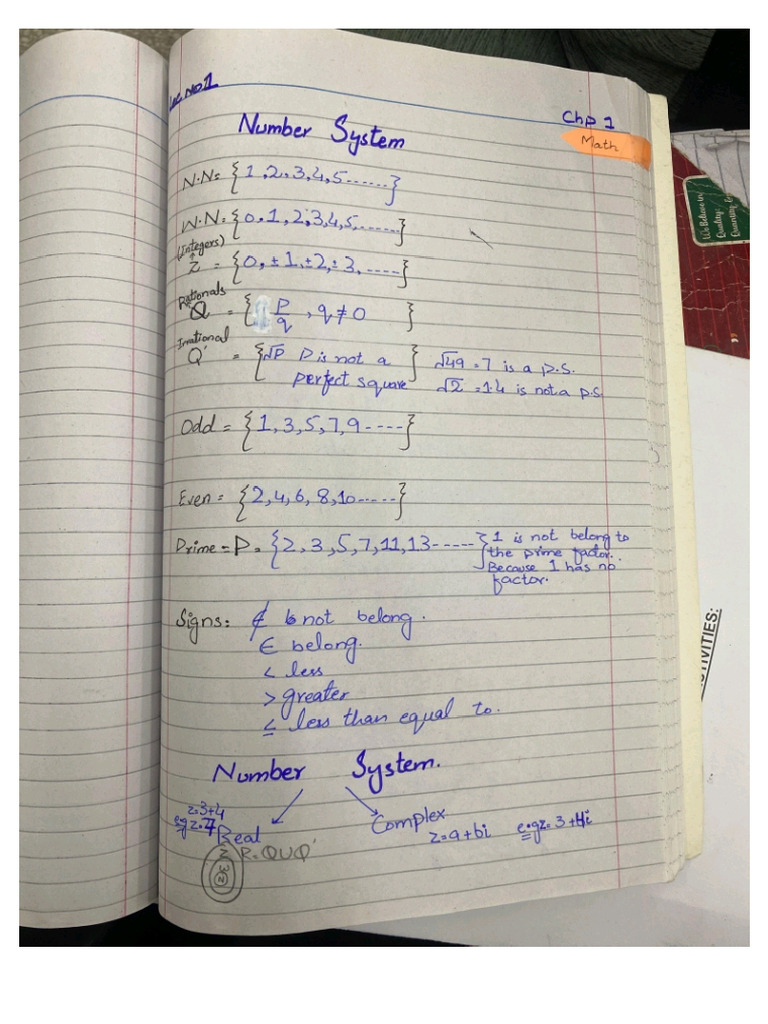 Lec No1
Chp 1
Number System
Math
N.N= {1,2,3,4,5......}
W.N.={0,1,2,3,4,5,.......}
(Integers)
Z = {0,±1,±2,±3,.....}
Rationals
Q = { p/q , q≠0 }
Irrational
Q' = {√P P is not a perfect square} √49=7 is a p.s.
√2=1.4 is not a p.s
Odd = {1,3,5,7,9----}
Even= {2,4,6,8,10-----}
Prime=P= {2,3,5,7,11,13-----} 1 is not belong to
the prime factor.
Because 1 has no
factor.
Signs: ∉ not belong.
∈ belong.
< less
> greater
≤ less than equal to.
Number System.
z=3+4
eg z=7
Real
Complex
z=a+bi e.g z=3+4i
R=QUQ'
Z
W
N
We Believe in
Quality,
TIVITIES: